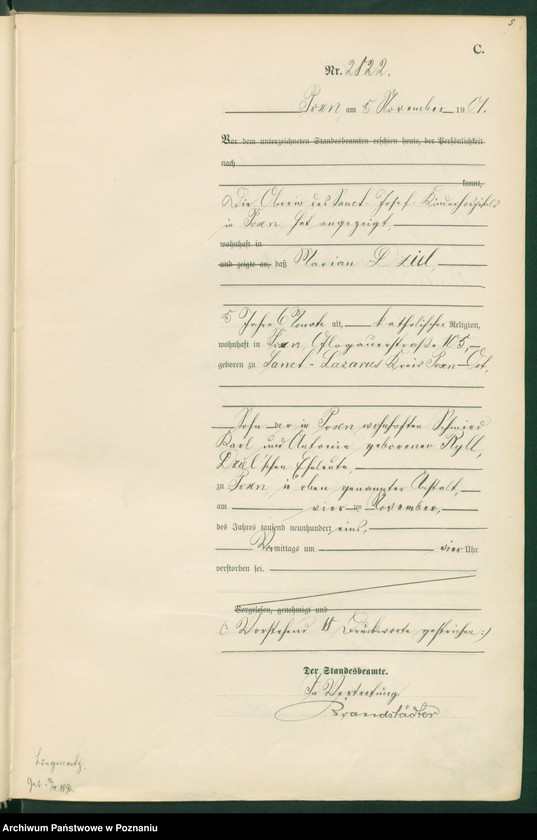 5
C.
Nr. 2822.
Posen, am 5 November 1901.
Vor dem unterzeichneten Standesbeamten erschien heute, der Persönlichkeit
nach
kannt,
Die Oberin des Sanct-Josef-Kinderhospitals
in Posen hat angezeigt,
wohnhaft in
und zeigte an, daß Marian Dziul,
5 Jahre 6 Monate alt, katholischer Religion,
wohnhaft in Posen, Glogauerstraße 105,
geboren zu Sanct-Lazarus Kreis Posen-Ost,
Sohn der in Posen wohnhaften Schmied
Karl und Antonie geborener Ryll,
Dziul'schen Eheleute,
zu Posen, in oben genannter Anstalt,
am vier ten November,
des Jahres tausend neunhundert eins,
Vormittags um vier Uhr
verstorben sei.
Vorgelesen, genehmigt und
(: Vorstehend Druckworte gestrichen :)
Der Standesbeamte.
In Vertretung
Brandstädter
Geb.
Archiwum Państwowe w Poznaniu